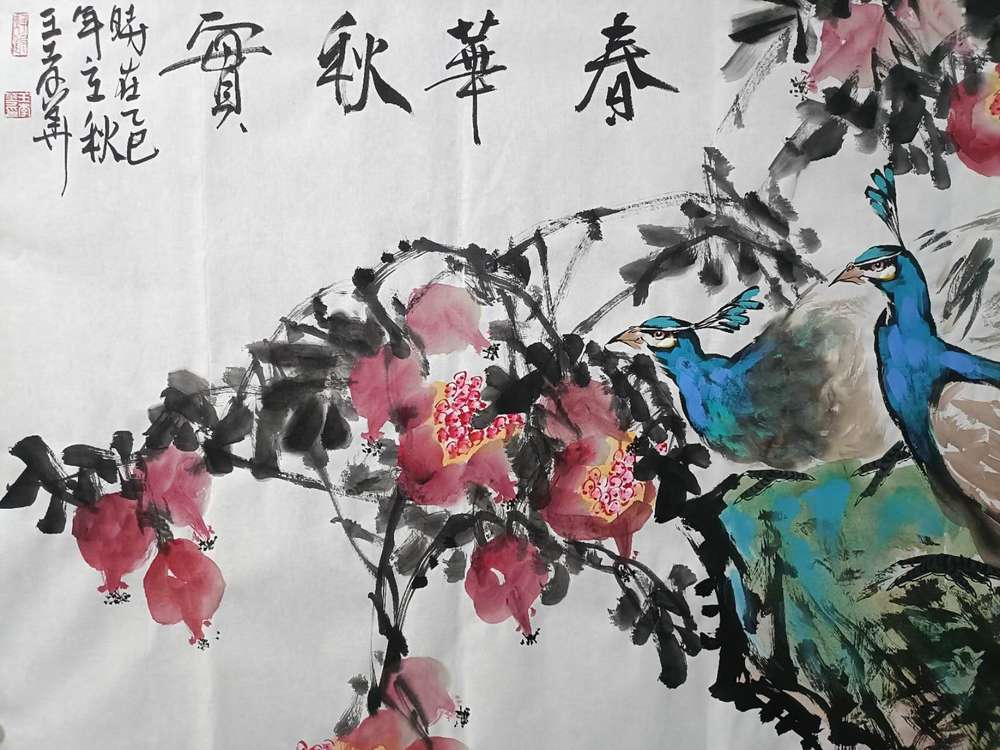 春華秋實
時在乙巳
年立秋
王